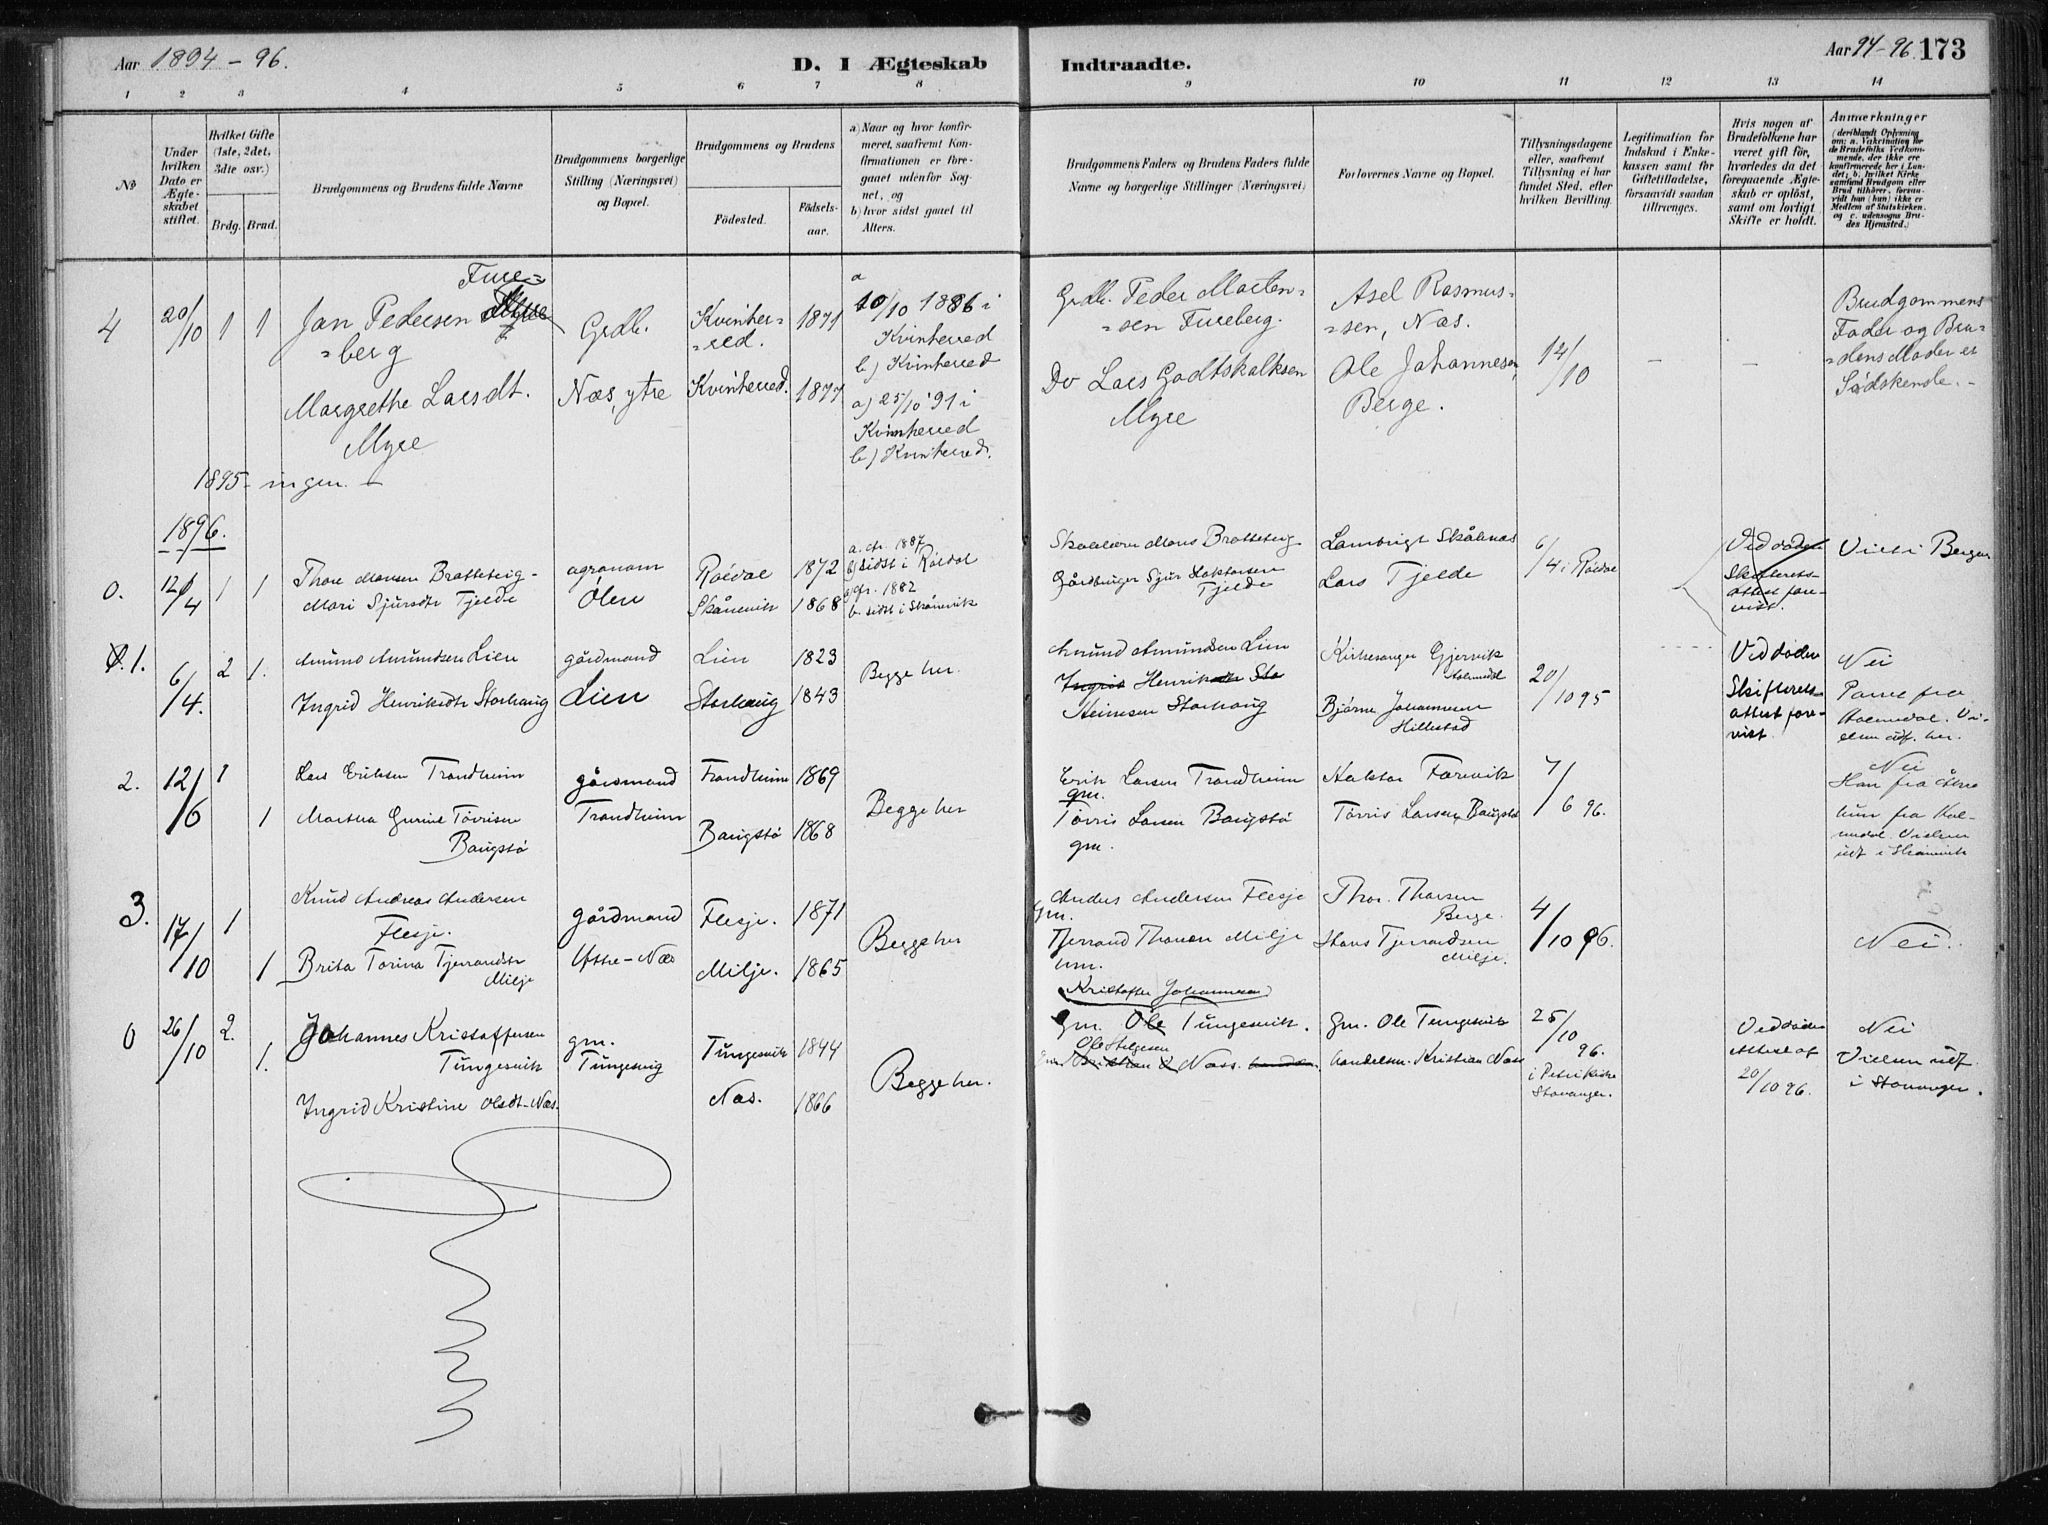 Aar 1894-96.
D. I Ægteskab Indtraadte.
Aar 94-96. 173
1 2 3 4 5 6 7 8 9 10 11 12 13 14
No
Under hvilken Dato er Ægteskabet stiftet.
Hvilket Gifte (1ste, 2det, 3dte osv.)
Brdg. Brud.
Brudgommens og Brudens fulde Navne
Brudgommens borgerlige Stilling (Næringsvei) og Bopæl.
Brudgommens og Brudens
Fødested.
Fødselsaar.
a) Naar og hvor konfirmeret, saafremt Konfirmationen er foregaaet udenfor Sognet, og
b) hvor sidst gaaet til Alters.
Brudgommens Faders og Brudens Faders fulde Navne og borgerlige Stillinger (Næringsvei)
Forlovernes Navne og Bopæl.
Tillysningsdagene eller, saafremt Tillysning ei har fundet Sted, efter hvilken Bevilling.
Legitimation for Indskud i Enkekassen samt for Giftetilladelse, forsaavidt saadan tiltrænges.
Hvis nogen af Brudefolkene har været gift før, hvorledes da det foregaaende Ægteskab er opløst, samt om lovligt Skifte er holdt.
Anmærkninger
(deriblandt Oplysning om: a. Vaksination for de Brudefolks Vedkommende, der ikke ere konfirmerede her i Landet; b. hvilket Kirkesamfund Brudgom eller Brud tilhører, forsaavidt han (hun) ikke er Medlem af Statskirken, og c. udensogns Brudes Hjemsted.)
4
20/10
1 1
Jan Pedersen Fure=
=berg
Margrethe Larsdt.
Myre
Grdb.
Næs, ytre
Kvinher=
=red.
1871
Kvinherred.
1877
a
10/10 1886 i
Kvinherred
b) Kvinherred
a) 25/10 '91 i
Kvinherred
b) Kvinherred.
Grdb. Peder Morten=
=sen Fureberg.
Do Lars Godtskalksen
Myre
Asel Rasmus=
=sen, Næs.
Ole Johannesen,
Berge.
14/10
-
-
Brudgommens
Fader og Bru=
=dens Moder er
Sødskende. -
1895 - ingen. -
1896.
0.
12/4
1 1
Thore Monsen Bratteteig
Mari Sjursdtr Tjelde
agronom
Ølen
Røldal 1872
Skånevik 1868
a. chr. 1887
b) sidst i Røldal
a) chr. 1882
b. sidst i Skånevik
Skolelærer Mons Bratteteig
Gårdbruger Sjur Haktorsen
Tjelde
Lambrigt Skålnæs
Lars Tjelde
6/4 i Røldal
Ved døden
Skifterets-
attest fore-
vist.
Viet i Bergen
1.
6/4.
2 1.
Amund Amundsen Lien
Ingrid Henriksdtr Storhaug
gårdmand
Lien
Lien 1823
Storhaug 1843
Begge her.
Amund Amundsen Lien
Ingrid Henriksdtr Sto
Storhaug
Kirkesanger Gjervik
Bjørne Johannesen
Hillestad
20/10 95
Ved døden
Skifterets-
attest fore-
vist.
Nei
Parret fra
2.
12/6
1
1
Lars Eriksen Trondheim
Martha Gurine Tørrisen
Baugstø
gårdmand
Trondheim
Trondheim 1869
Baugstø 1868
Begge her
Erik Larsen Trondheim
gm.
Tørris Larsen Baugstø
gm.
Halstor Farevik
Tørris Larsen Baugstø
7/6 96.
Nei
Han fra Åkre
hun fra
3.
17/10
1
1
Knud Andreas Andersen
Flesje.
Brita Torina Tjerrandsdtr
Milje
gårdmand
Yttre-Næs
Flesje. 1871
Milje. 1865
Begge her
Anders Andersen Flesje
Gm.
Tjerrand Thoresen Milje
Thor. Thorsen
Berge.
Hans Tjerrandsen
Milje.
4/10 96.
Nei.
0
26/10
2.
1.
Johannes Kristoffersen
Tungesvik
Ingrid Kristine Olsdt. Næs.
gm.
Tungesvig
Tungesvik 1844
Næs. 1866
Begge her.
Kristoffer Johannesen
Gm. Ole Tungesvik.
Ole Helgesen
Næss.
Gm. Ole Tungesvik
handelsm. Kristian Næss
25/10 96.
i Petrikirke
Stavanger.
Ved døden
Attest af
20/10 96.
Nei
Vielsen udf.
i Stavanger.